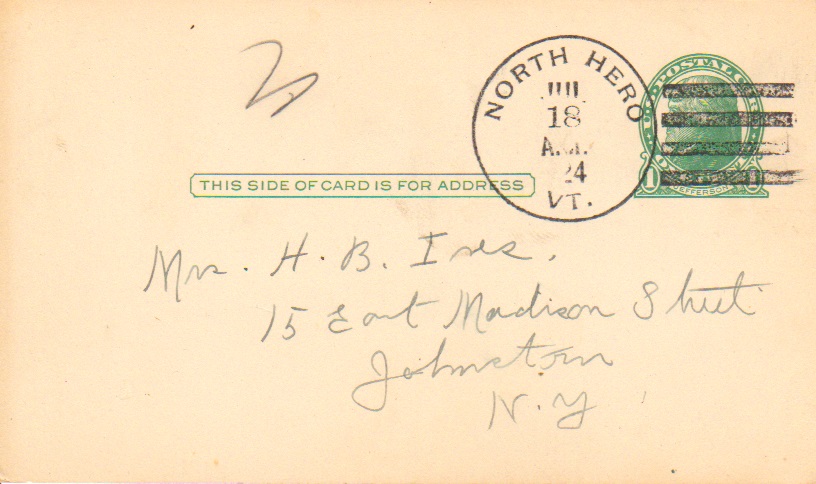 NORTH HERO
18
A.M.
24
VT.
U.S. POSTAL CARD
1 JEFFERSON 1
THIS SIDE OF CARD IS FOR ADDRESS
Mrs. H. B. Ives.
15 East Madison Street
Johnstown
N.Y